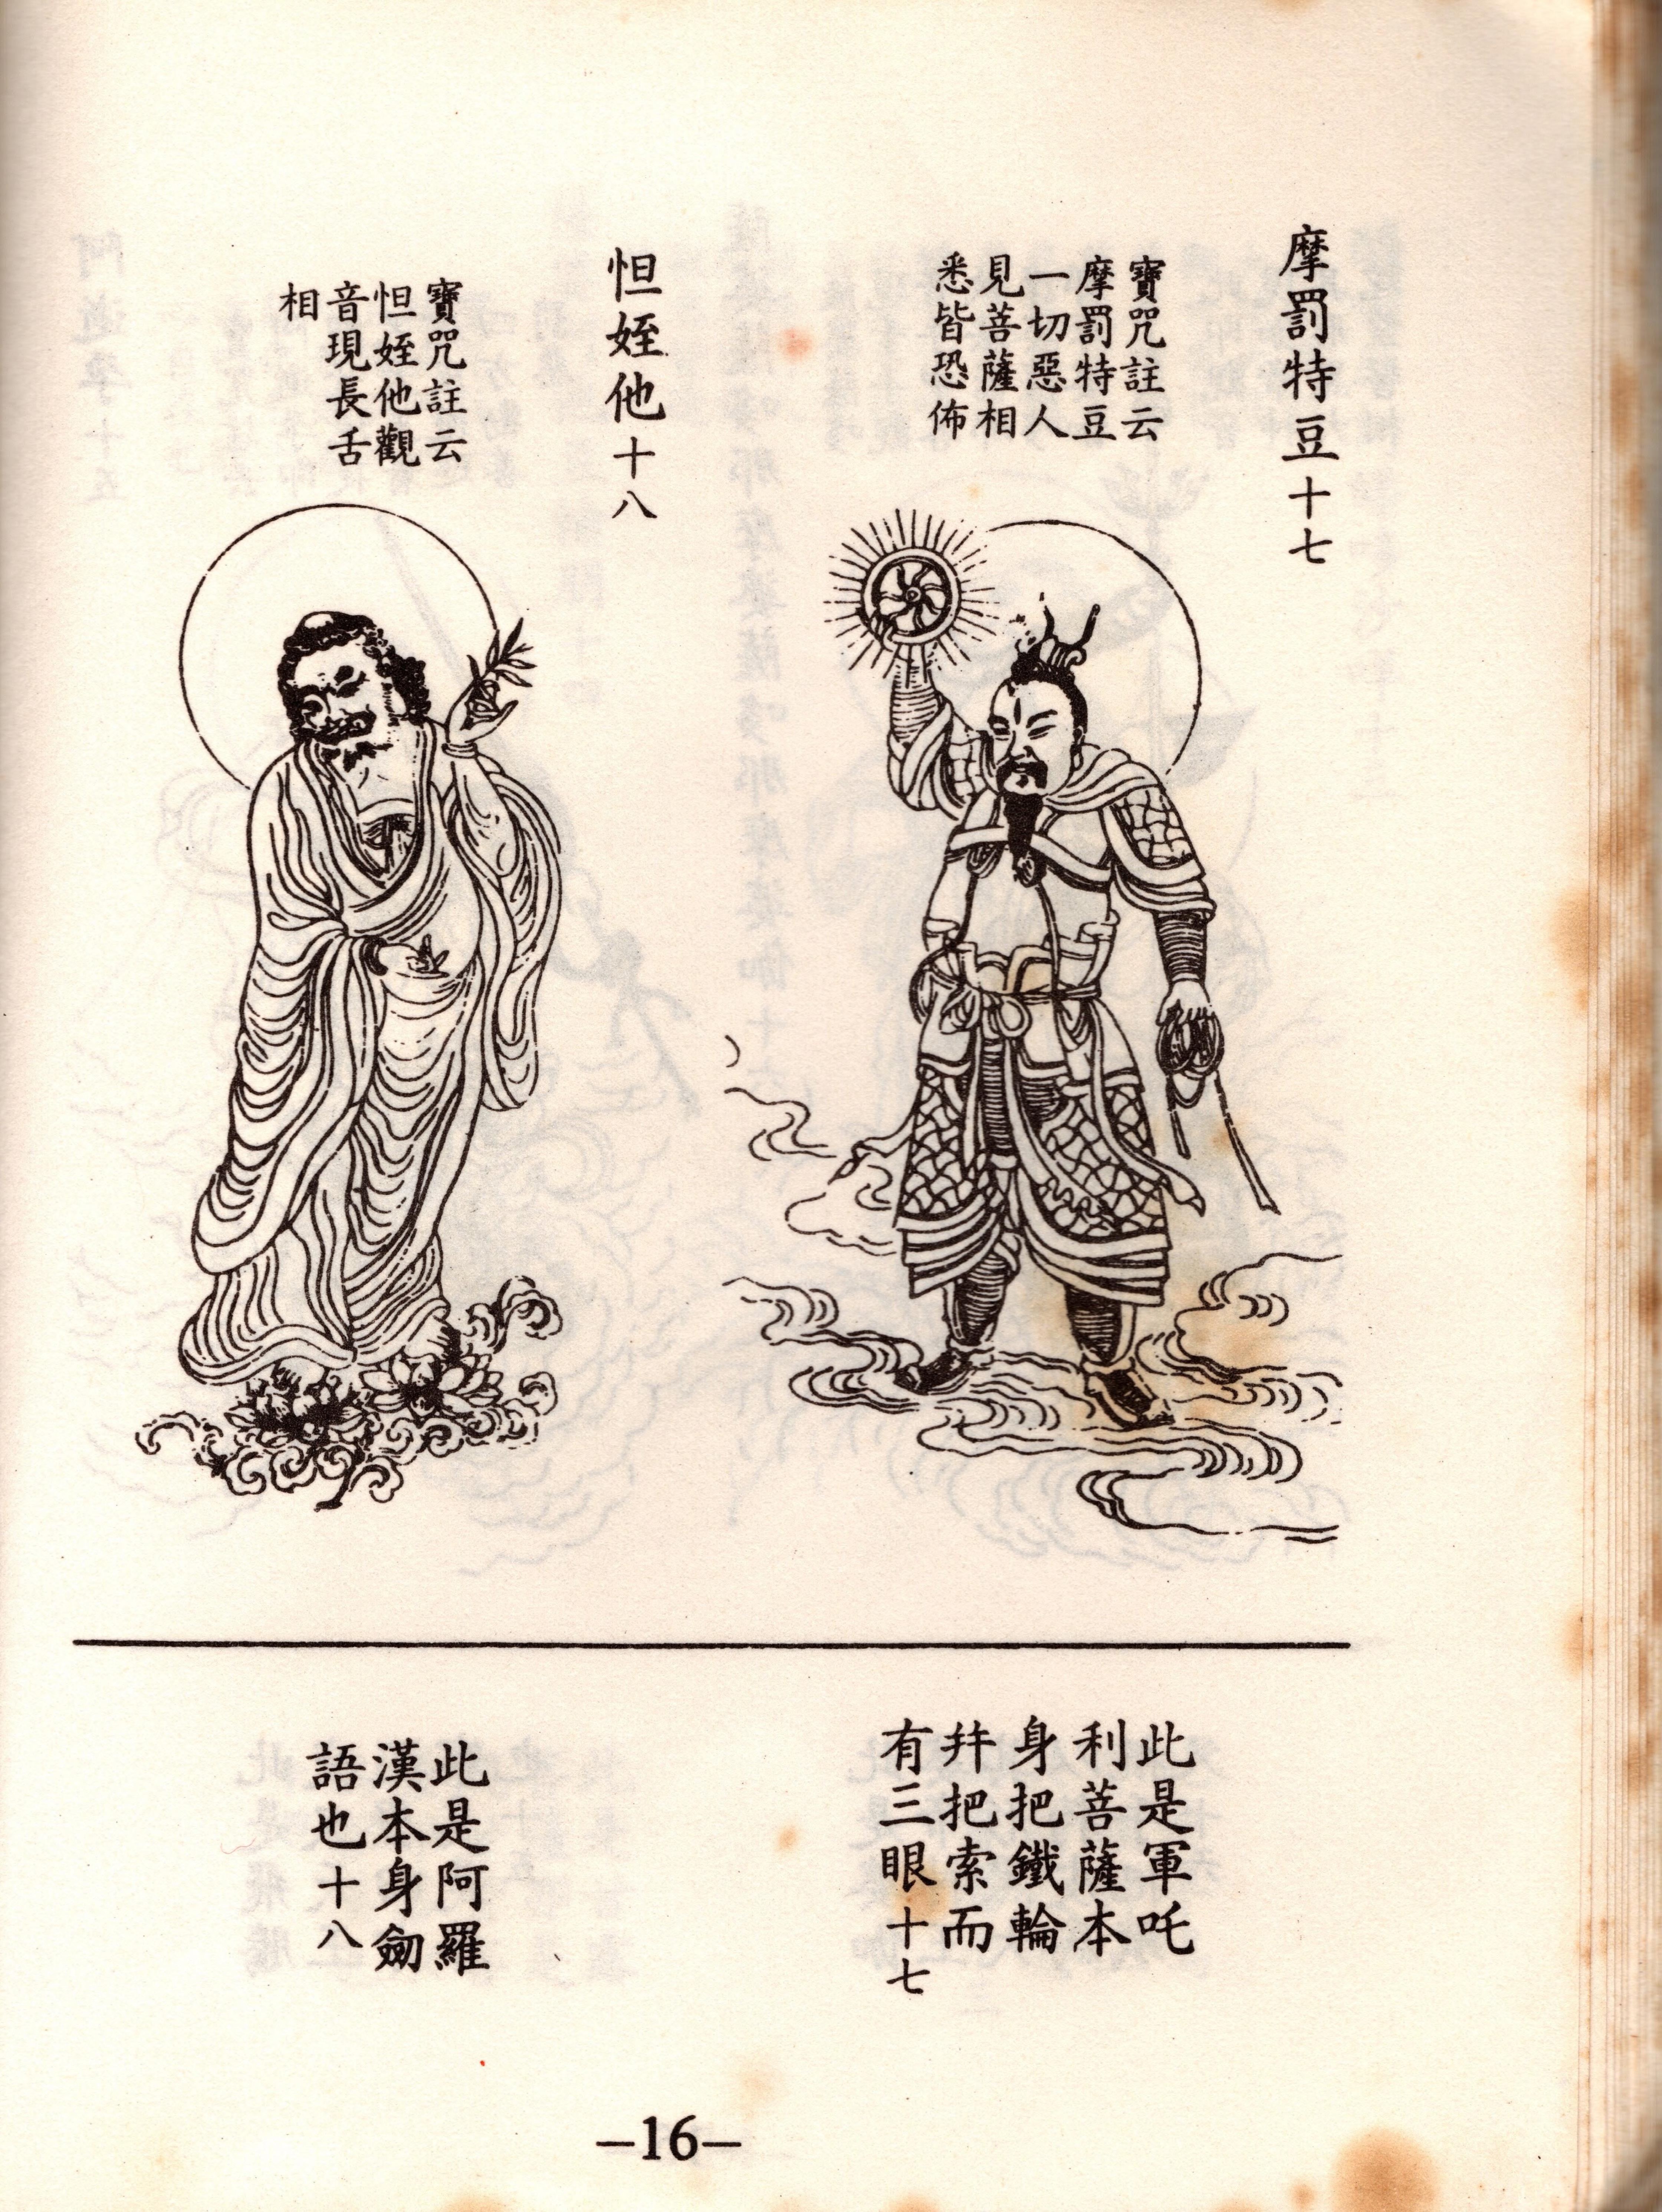 摩罰特豆十七
寶咒註云
摩罰特豆
一切惡人
見菩薩相
悉皆恐佈
怛姪他十八
寶咒註云
怛姪他觀
音現長舌
相
此是軍吒
利菩薩本
身把鐵輪
幷把索而
有三眼十七
此是阿羅
漢本身劒
語也十八
–16–